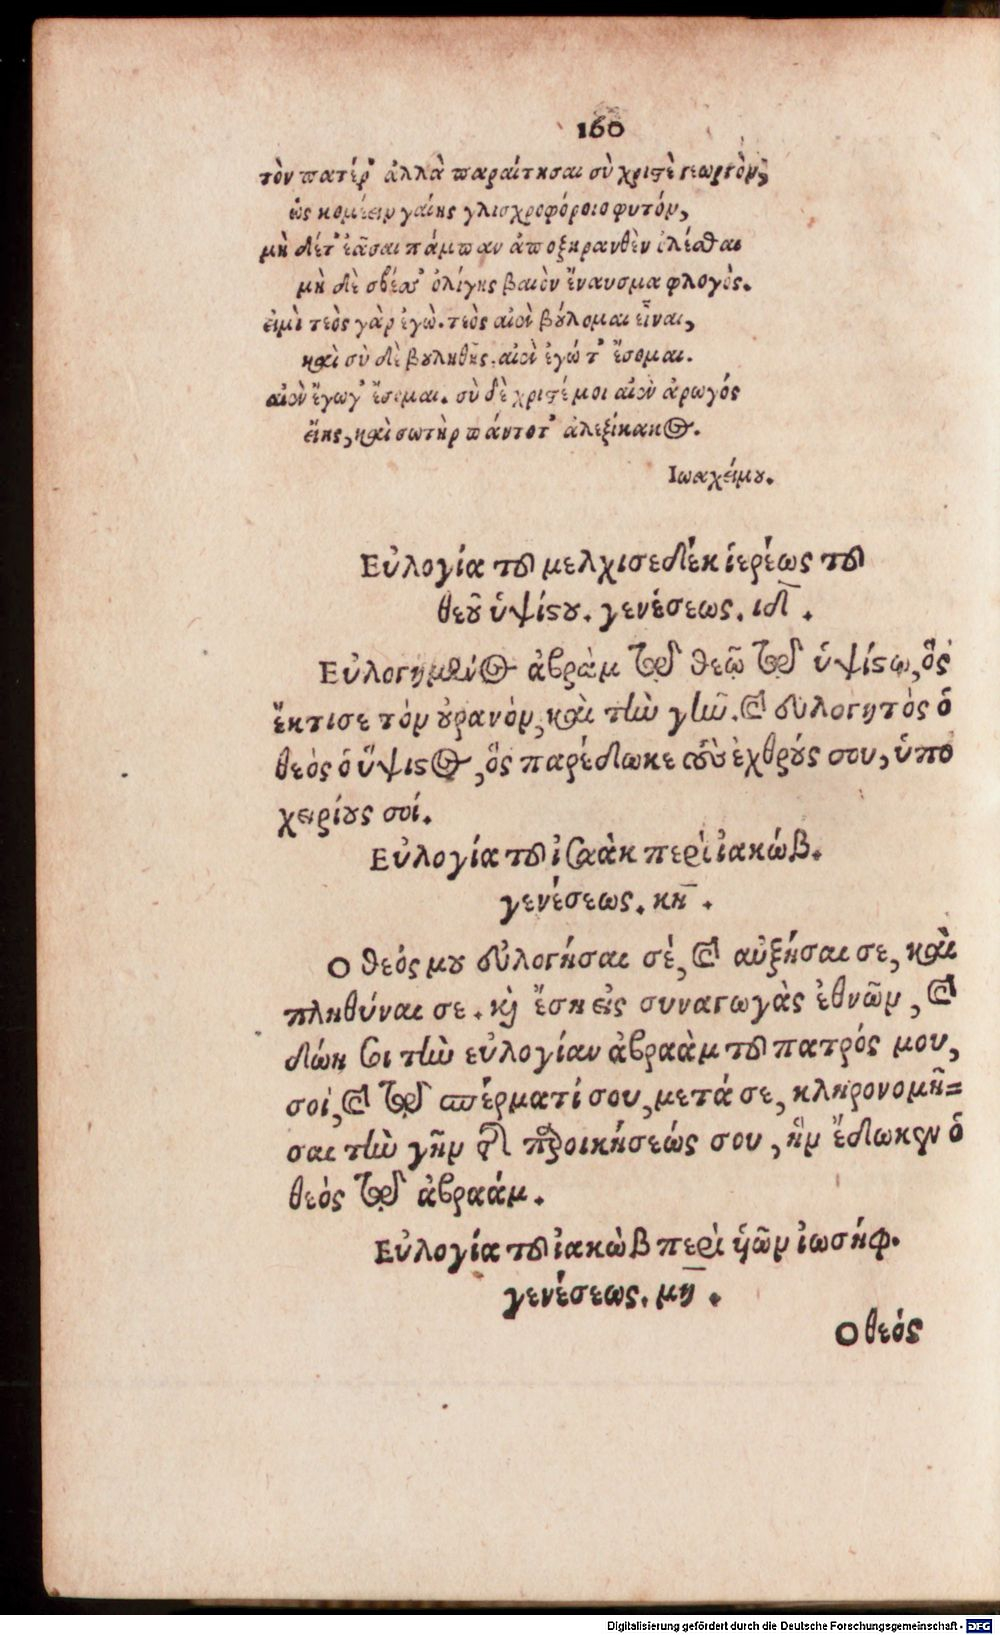 160
τὸν πατέρ' ἀλλὰ παραίτησαι σὺ χριστὲ γεωργὸν,
ὡς κομέειν γαίης γλισχροφόροιο φυτόν,
μὴ δέτ' ἐᾶσαι πάμπαν ἀποξηρανθὲν ὀλέσθαι
μὴ δὲ σβέσ' ὀλίγης βαιὸν ἔναυσμα φλογός.
εἰμὶ τεὸς γὰρ ἐγώ. τεὸς αἰεὶ βούλομαι εἶναι,
καὶ σὺ δὲ βουληθῇς, αἰεὶ ἐγώ τ' ἔσομαι.
αἰὲν ἔγωγ' ἔσομαι. σὺ δὲ χριστέ μοι αἰὲν ἀρωγός
εἴης, καὶ σωτὴρ πάντοτ' ἀλεξίκακος.
Ιωαχείμου.
Εὐλογία τοῦ μελχισεδέκ ἱερέως τοῦ
θεοῦ ὑψίστου. γενέσεως. ιδ̅.
Εὐλογημένος ἀβρὰμ τῷ θεῷ τῷ ὑψίστῳ, ὃς
ἔκτισε τόν οὐρανόν, καὶ τὴν γῆν. καὶ εὐλογητὸς ὁ
θεὸς ὁ ὕψιστος, ὃς παρέδωκε τοὺς ἐχθρούς σου, ὑπο
χειρίους σοί.
Εὐλογία τοῦ ἰσαὰκ περὶ ἰακώβ.
γενέσεως. κη̅.
Ο θεός μου εὐλογήσαι σέ, καὶ αὐξήσαι σε, καὶ
πληθύναι σε. καὶ ἔσῃ εἰς συναγωγὰς ἐθνῶν, καὶ
δώη σοι τὴν εὐλογίαν ἀβραὰμ τοῦ πατρός μου,
σοί, καὶ τῷ σπέρματί σου, μετά σε, κληρονομῆ=
σαι τὴν γῆν τῆς παροικήσεώς σου, ἣν ἔδωκεν ὁ
θεός τῷ ἀβραάμ.
Εὐλογία τοῦ ἰακὼβ περὶ ὑῶν ἰωσήφ.
γενέσεως. μη̅.
Ο θεός
Digitalisierung gefördert durch die Deutsche Forschungsgemeinschaft - DFG